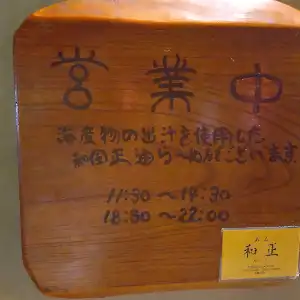 営業中
海産物の出汁を使用した
和風正油らーめん店でございます
11:30～14:30
18:30～22:00
和正